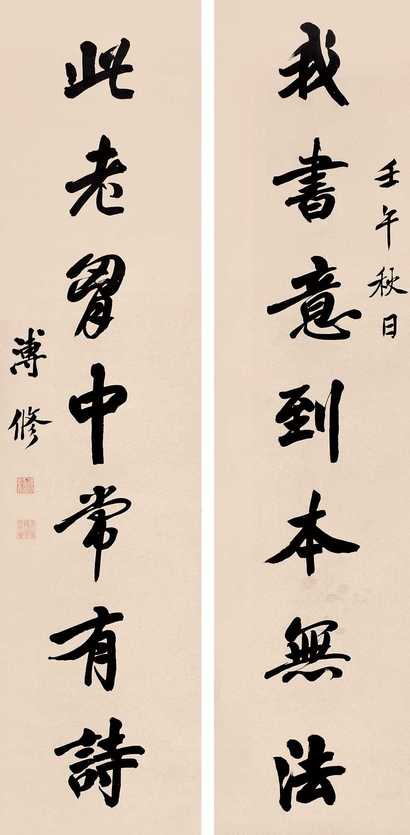 壬午秋日
我書意到本無法
此老胷中常有詩
溥修